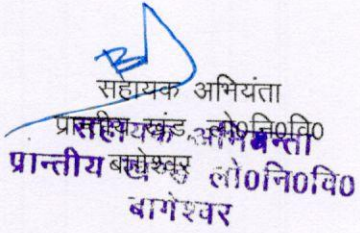 सहायक अभियंता
प्रान्तीय खंड लो०नि०वि०
बागेश्वर
सहायक अभियन्ता
प्रान्तीय खण्ड लो०नि०वि०
बागेश्वर